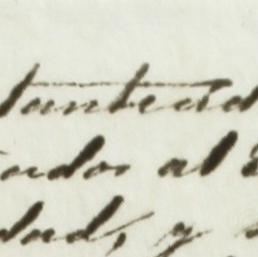 tantead
ados al
dad, y